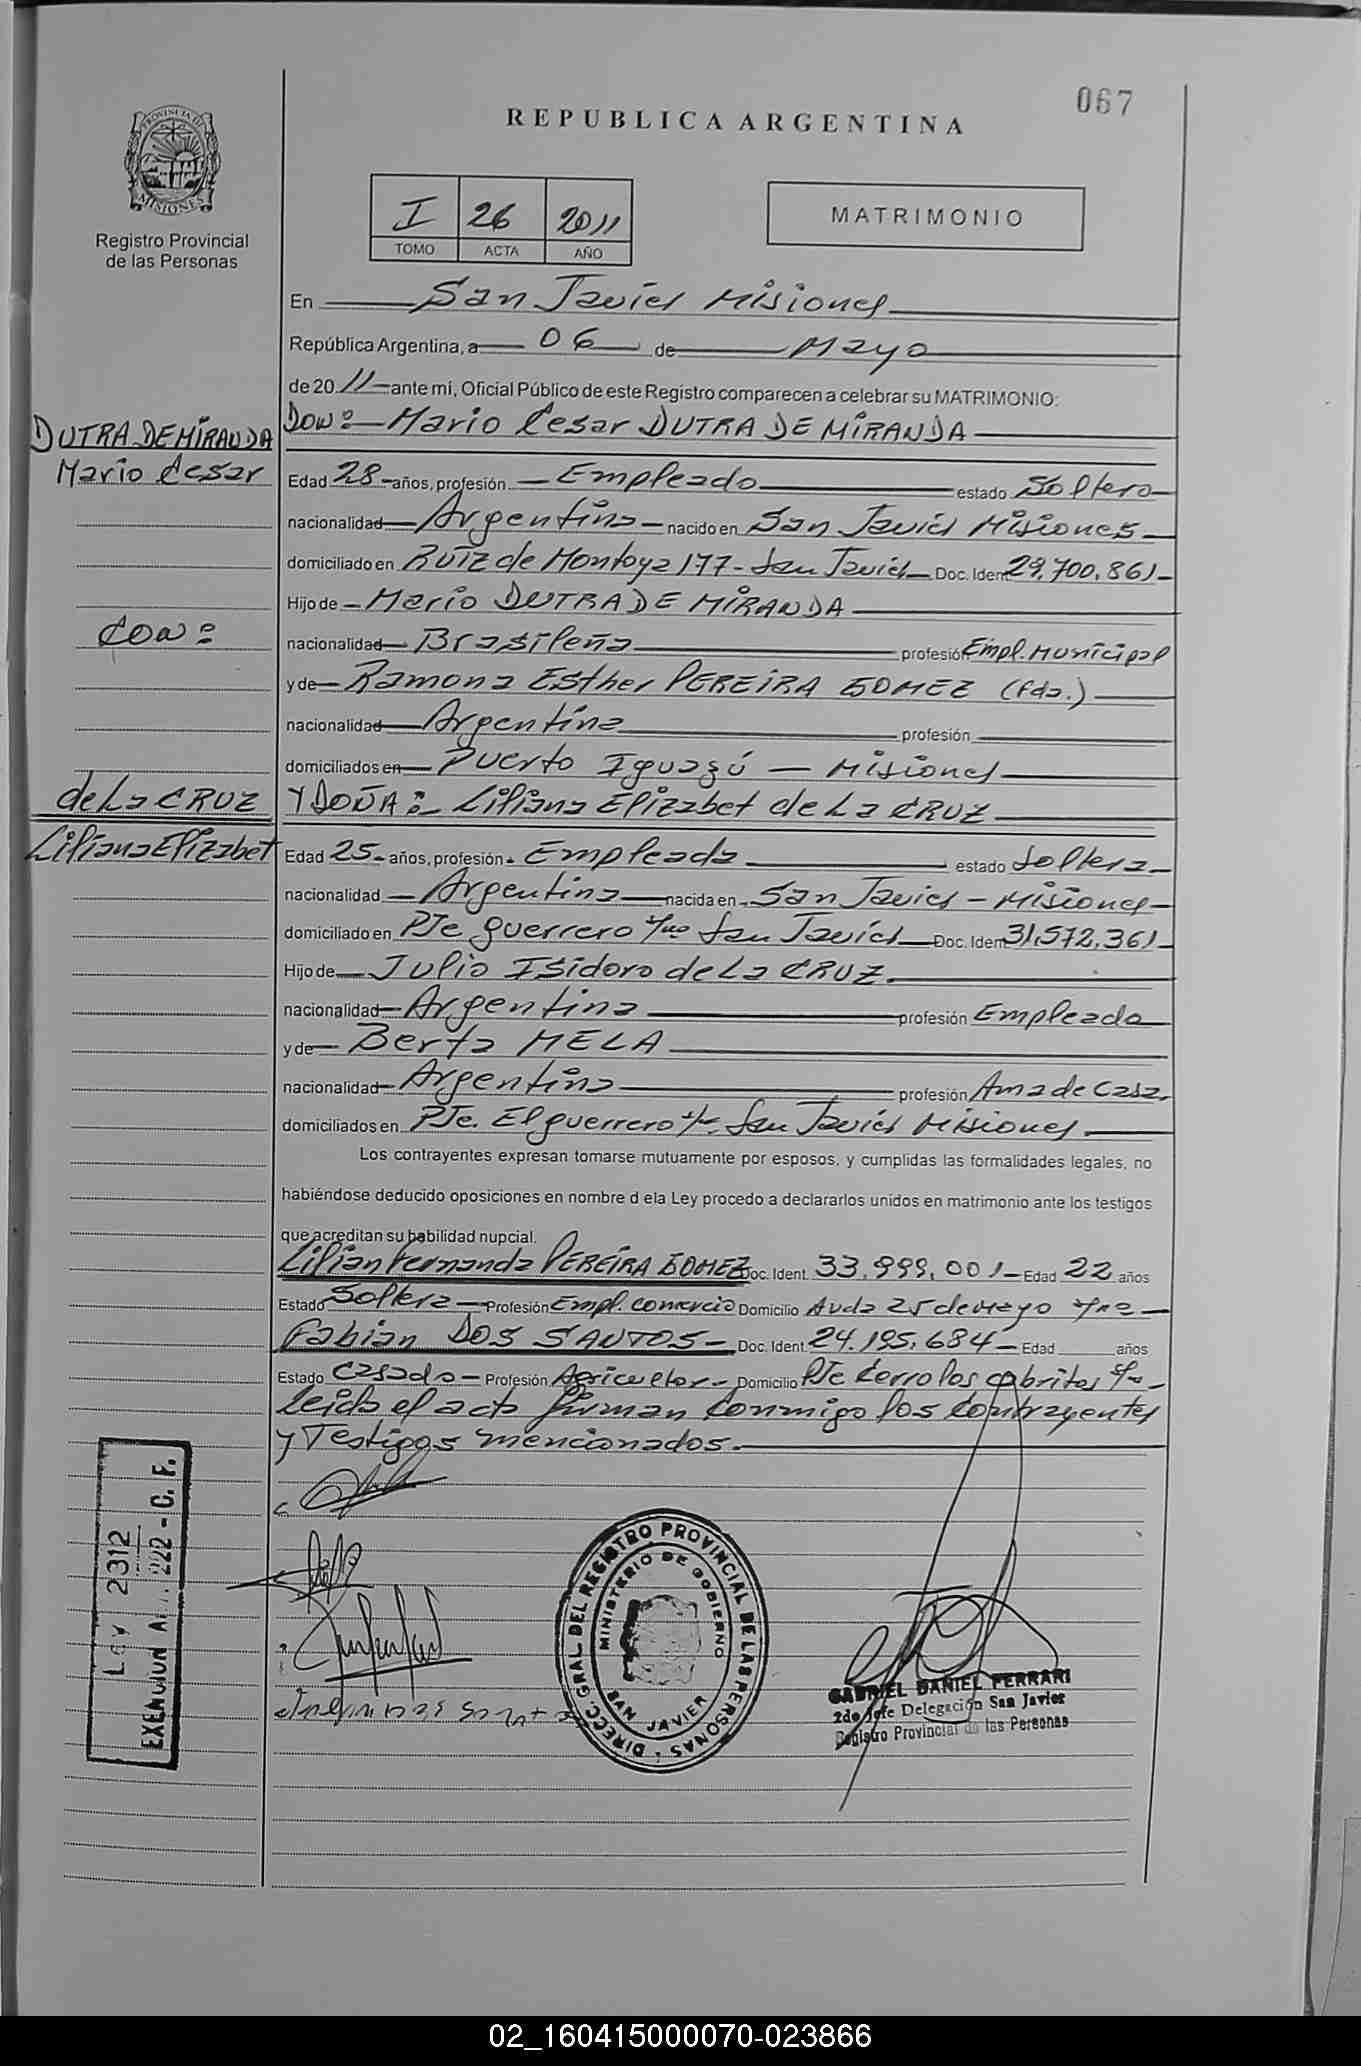 067
REPUBLICA ARGENTINA
PROVINCIA DE
MISIONES
Registro Provincial
de las Personas
I 26 2011
TOMO ACTA AÑO
MATRIMONIO
En San Javier Misiones
República Argentina, a 06 de Mayo
de 2011 ante mi, Oficial Público de este Registro comparecen a celebrar su MATRIMONIO:
DUTRA DE MIRANDA
Mario Cesar
Don: Mario Cesar DUTRA DE MIRANDA
Edad 28 años, profesión Empleado estado Soltero
nacionalidad Argentina nacido en San Javier Misiones
domiciliado en RUIZ de Montoya 177 - San Javier Doc. Ident 29.700.861
Hijo de Mario DUTRA DE MIRANDA
Con:
nacionalidad Brasileña profesión Empl. Municipal
y de Ramona Esther PEREIRA GOMEZ (fda.)
nacionalidad Argentina profesión
domiciliados en Puerto Iguazú - Misiones
de La CRUZ
Liliana Elizabet
Y DOÑA: Liliana Elizabet de La CRUZ
Edad 25 años, profesión Empleada estado Soltera
nacionalidad Argentina nacida en San Javier - Misiones
domiciliado en PJe guerrero s/no San Javier Doc. Ident 31.572.361
Hijo de Julio Isidoro de La CRUZ
nacionalidad Argentina profesión Empleado
y de Berta MELA
nacionalidad Argentina profesión Ama de Casa.
domiciliados en PJe. El guerrero s/n. San Javier Misiones
Los contrayentes expresan tomarse mutuamente por esposos, y cumplidas las formalidades legales, no
habiéndose deducido oposiciones en nombre d ela Ley procedo a declararlos unidos en matrimonio ante los testigos
que acreditan su habilidad nupcial.
Lilian Fernanda PEREIRA GOMEZ Doc. Ident. 33.999.001 Edad 22 años
Estado Soltera Profesión Empl. Comercio Domicilio Avda 25 de Mayo s/no
Fabian DOS SANTOS Doc. Ident. 24.195.684 Edad años
Estado Casado Profesión Agricultor Domicilio PJe Cerro los cabritos s/n
Leida el acta firman conmigo los Contrayentes
y Testigos mencionados.
LEY 2312
222 - C. F.
DIRECC. GRAL. DEL REGISTRO PROVINCIAL DE LAS PERSONAS
MINISTERIO DE GOBIERNO
SAN JAVIER
GABRIEL DANIEL FERRARI
2do Jefe Delegación San Javier
Registro Provincial de las Personas
02_160415000070-023866